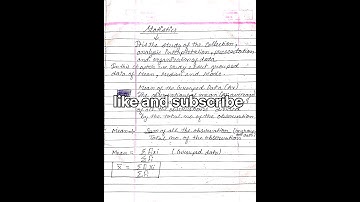 Statistics
It is the study of the collection,
analysis interpretation, presentation
and organisation of data.
In this we study about grouped
data of Mean, Median and Mode.
Mean of the Grouped Data
The of mean
like and subscribe
of all the observations divided
by the total no of the observation
Mean = Sum of all the observation
Total no. of the observation
Mean = Σfixi (Grouped data)
Σfi
x̄ = Σfixi
Σfi